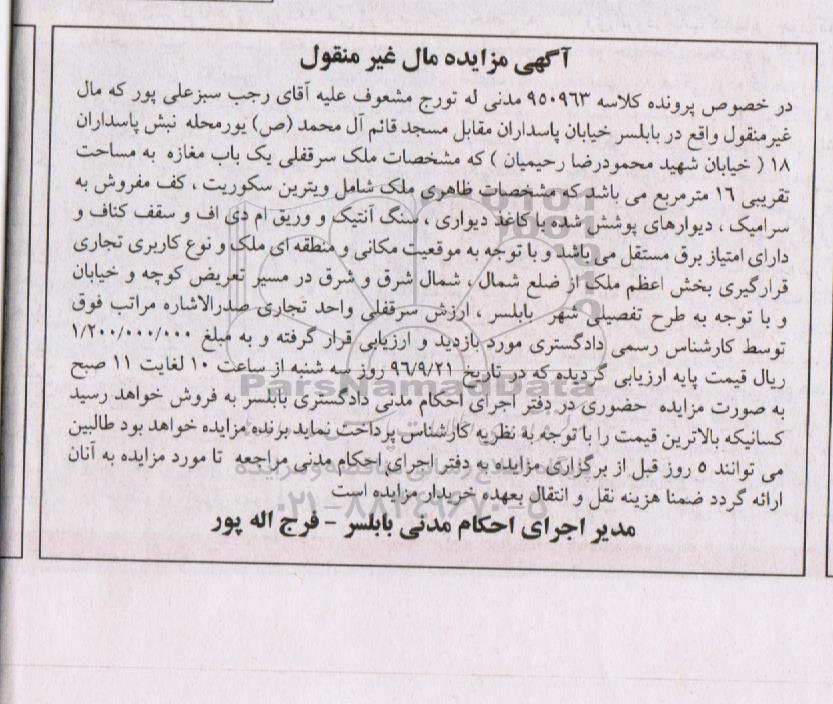 آگهی مزایده مال غیر منقول
در خصوص پرونده کلاسه ۹۵۰۹۶۳ مدنی له تورج مشعوف علیه آقای رجب سبزعلی پور که مال
غیرمنقول واقع در بابلسر خیابان پاسداران مقابل مسجد قائم آل محمد (ص) یورمحله نبش پاسداران
۱۸ ( خیابان شهید محمودرضا رحیمیان ) که مشخصات ملک سرقفلی یک باب مغازه به مساحت
تقریبی ۱۶ مترمربع می باشد که مشخصات ظاهری ملک شامل ویترین سکوریت ، کف مفروش به
سرامیک ، دیوارهای پوشش شده با کاغذ دیواری ، سنگ آنتیک و وریق ام دی اف و سقف کناف و
دارای امتیاز برق مستقل می باشد و با توجه به موقعیت مکانی و منطقه ای ملک و نوع کاربری تجاری
قرارگیری بخش اعظم ملک از ضلع شمال ، شمال شرق و شرق در مسیر تعریض کوچه و خیابان
و با توجه به طرح تفصیلی شهر بابلسر ، ارزش سرقفلی واحد تجاری صدرالاشاره مراتب فوق
توسط کارشناس رسمی دادگستری مورد بازدید و ارزیابی قرار گرفته و به مبلغ ۱/۲۰۰/۰۰۰/۰۰۰
ریال قیمت پایه ارزیابی گردیده که در تاریخ ۹۶/۹/۲۱ روز سه شنبه از ساعت ۱۰ لغایت ۱۱ صبح
به صورت مزایده حضوری در دفتر اجرای احکام مدنی دادگستری بابلسر به فروش خواهد رسید
کسانیکه بالاترین قیمت را با توجه به نظریه کارشناس پرداخت نماید برنده مزایده خواهد بود طالبین
می توانند ۵ روز قبل از برگزاری مزایده به دفتر اجرای احکام مدنی مراجعه تا مورد مزایده به آنان
ارائه گردد ضمنا هزینه نقل و انتقال بعهده خریدار مزایده است
مدیر اجرای احکام مدنی بابلسر - فرج اله پور
ParsNamadData
۰۲۱-۸۸۳۴۹۶۷۰-۵